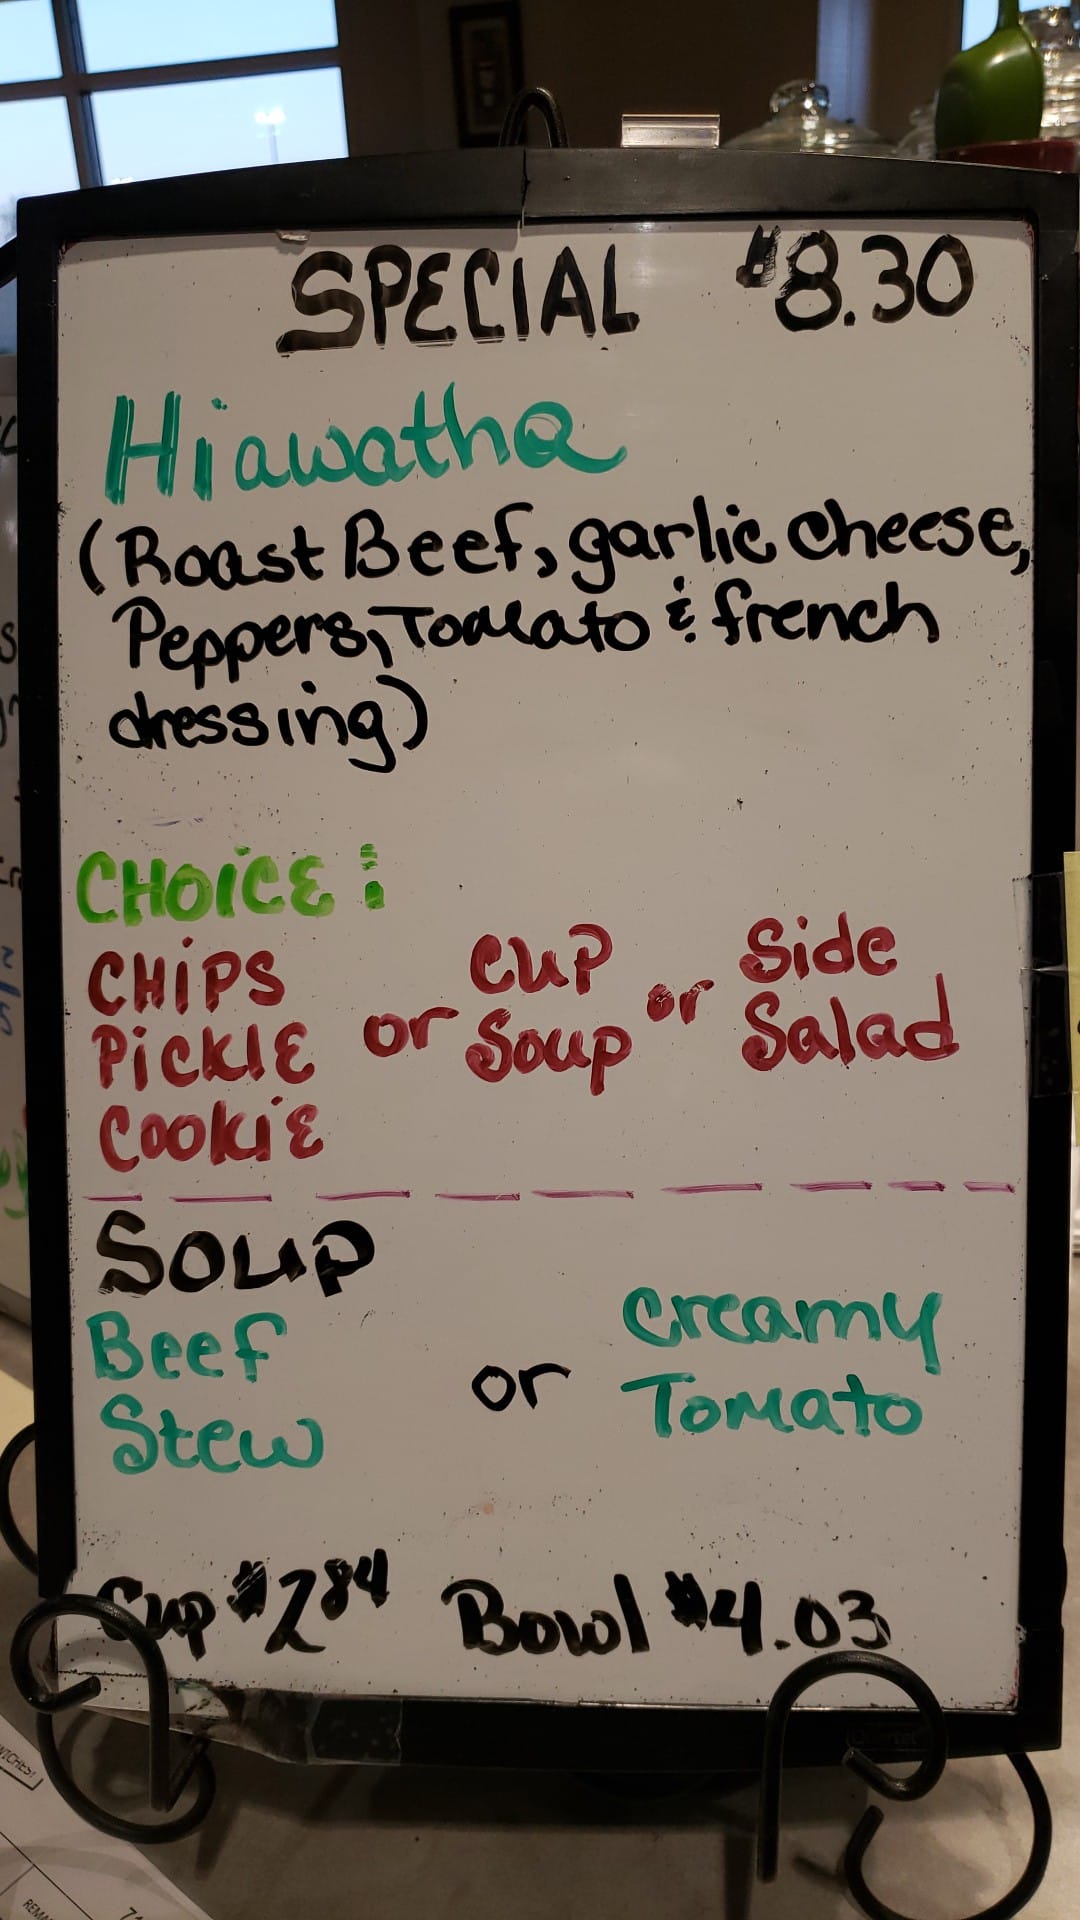 SPECIAL $8.30
Hiawatha
(Roast Beef, garlic cheese,
Peppers, Tomato & french
dressing)
CHOICE:
CHIPS
PICKLE
COOKIE
or
CUP
Soup
or
Side
Salad
Soup
Beef
Stew
or
Creamy
Tomato
Cup $2.84 Bowl $4.03
Quartet